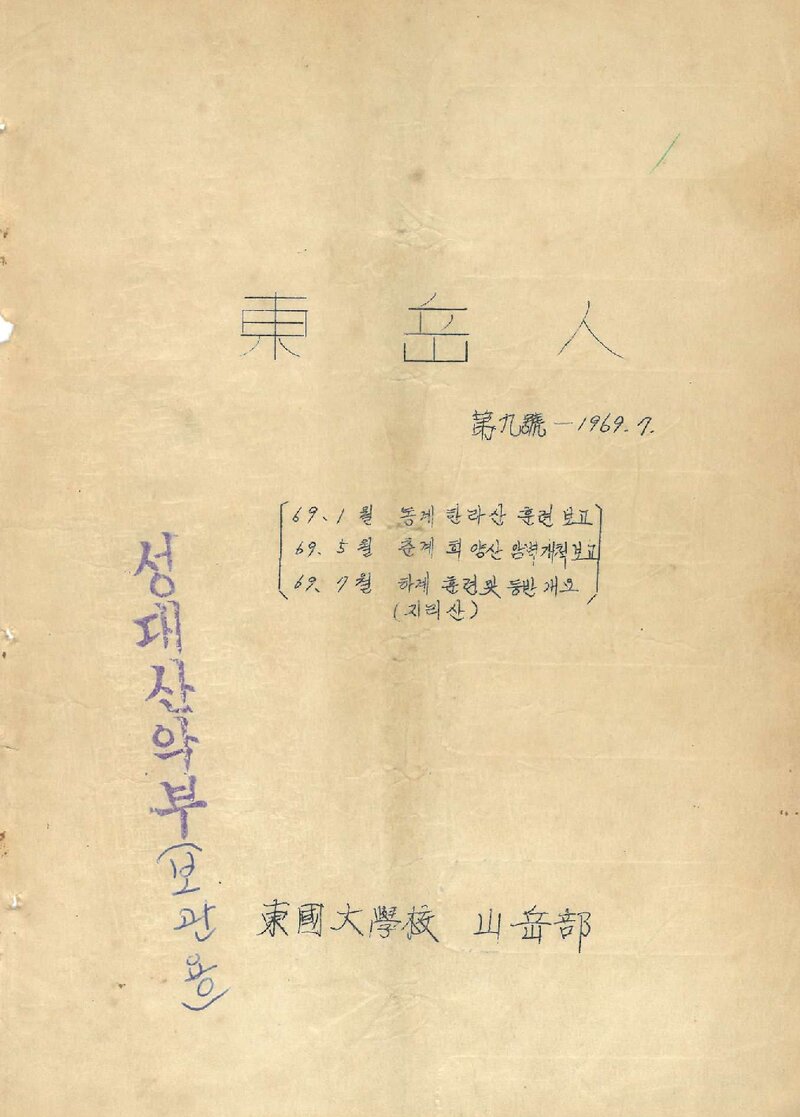 東岳人
第九號 - 1969. 7.
69. 1월 동계 한라산 훈련 보고
69. 5월 춘계 희양산 암벽개척보고
69. 7월 하계 훈련및 등반 개요
(지리산)
성대산악부(보관용)
東國大學校 山岳部